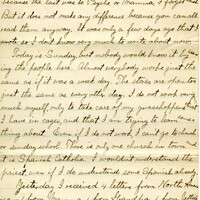 because the last was to Papa or Mamma, I forget
But it does not make any difference because you can all
read them anyway. It was only a few days ago that I
wrote so I don't know very much to write about now.
Today is Sunday, but nobody would know it by see-
ing the people here. Almost everybody works just the
same as if it was a week day. The stores are open
just the same as every other day. I do not work very
much myself, only to take care of my grasshoppers that
I have in cages, and that I am trying to learn some
thing about. Even if I do not work, I can't go to church
or sunday school. There is only one church in town and
it is Spanish Catholic. I wouldn't understand the
priest, even if I do understand some Spanish already.
Yesterday I received 4 letters from North